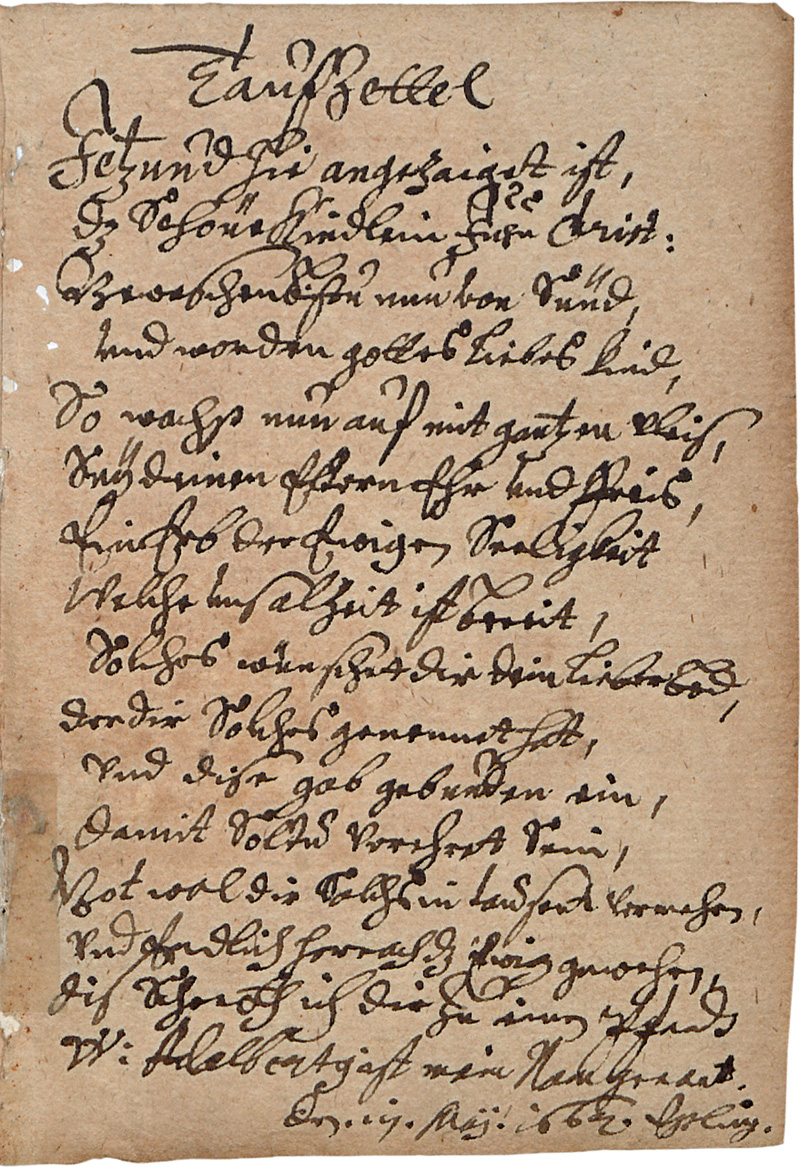 Taufzettel
Jetzund hie angezaiget ist,
dz Schöne Kindlein Jesu Crist:
Gewaschen bistu nun von Sünd,
und worden gottes liebes kind,
So wachß nun auf mit gantzen vleis,
Seÿ deinen Eltern Ehr und Preis,
Ein Erb der Ewigen Seeligkeit
Welche uns alzeit ist bereit,
Solches wünschet dir dein lieber
der dir Solches genennet hatt,
und dise gab gebunden ein,
damit Soltu verehret Sein,
Got wol dir Solchs in tausent vermehren,
und Endlich hernach dz Ewig
dis Schenckh ich dir zu einen Pfandt
W: ist mein Nam genant.
Den